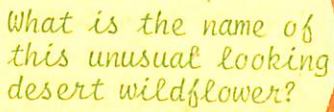 What is the name of
this unusual looking
desert wildflower?